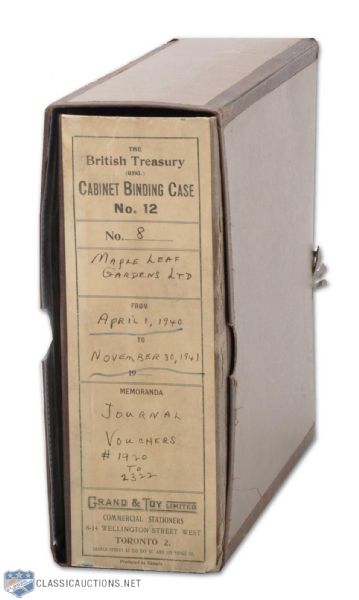 THE
British Treasury
(REGD.)
CABINET BINDING CASE
No. 12
No. 8
MAPLE LEAF
GARDENS LTD
FROM
APRIL 1, 1940
TO
NOVEMBER 30, 1941
19
MEMORANDA
JOURNAL
VOUCHERS
# 1920
TO
2322
GRAND & TOY LIMITED
COMMERCIAL STATIONERS
8-14 WELLINGTON STREET WEST
TORONTO 2.
CLASSICAUCTIONS.NET